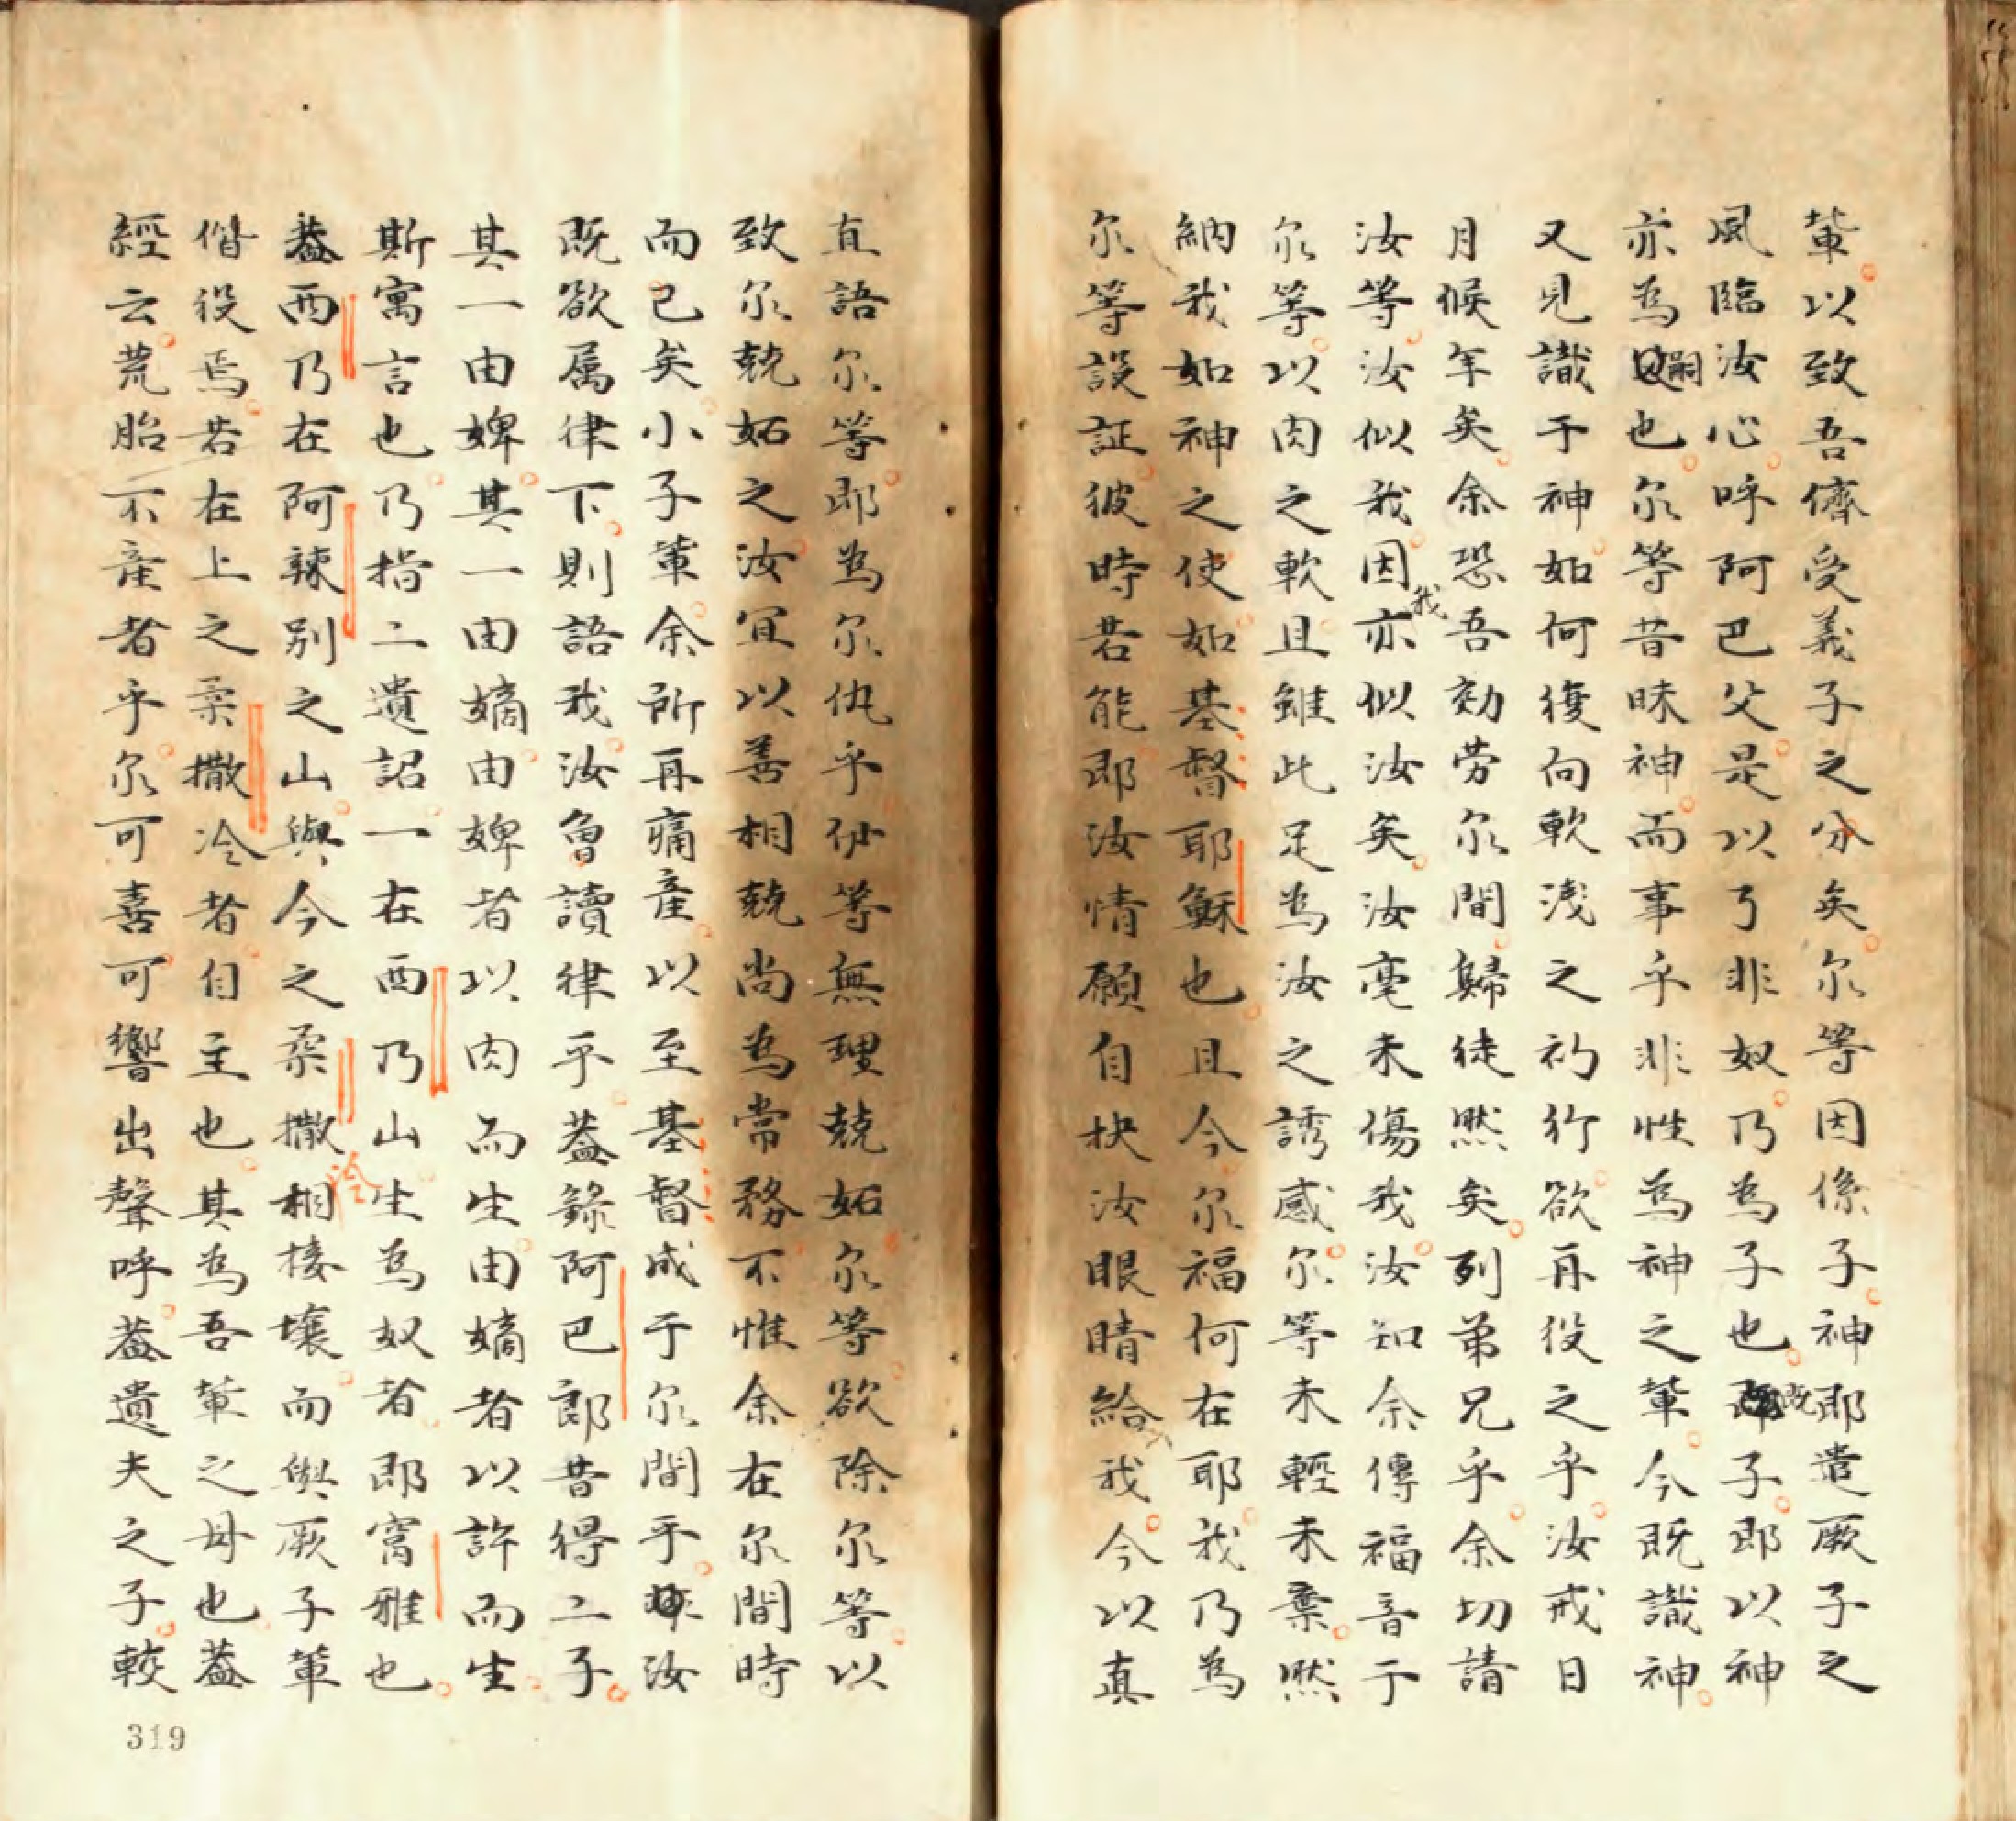 輩以致吾儕受義子之分矣尔等因係子神即遣厥子之
風臨汝心呼阿巴父是以了非奴乃為子也既子即以神
亦為嗣也尔等昔昧神而事乎非性為神之輩今既識神
又見識于神如何復向軟淺之礿行欲再役之乎汝戒日
月候年矣余恐吾効劳尔間歸徒然矣列弟兄乎余切請
汝等汝似我因我亦似汝矣汝毫未傷我汝知余傳福音于
尔等以肉之軟且雖此足為汝之誘感尔等未輕未棄然
納我如神之使如基督耶穌也且今尔福何在耶我乃為
尔等設証彼時若能即汝情願自抉汝眼睛給我今以真
直語尔等即為尔仇乎伊等無理兢妬尔等欲除尔等以
致尔兢妬之汝宜以善相兢尚為常務不惟余在尔間時
而已矣小子輩余所再痛產以至基督成于尔間乎汝
既欲属律下則語我汝曾讀律乎蓋錄阿巴郎昔得二子
其一由婢其一由嫡由婢者以肉而生由嫡者以許而生
斯寓言也乃指二遺詔一在西乃山生為奴者即寤雅也
蓋西乃在阿辣别之山與今之柔撒冷相接壤而與厥子輩
偕役焉若在上之柔撒冷者自主也其為吾輩之母也蓋
經云荒胎不產者乎尔可喜可響出聲呼蓋遺夫之子較
319